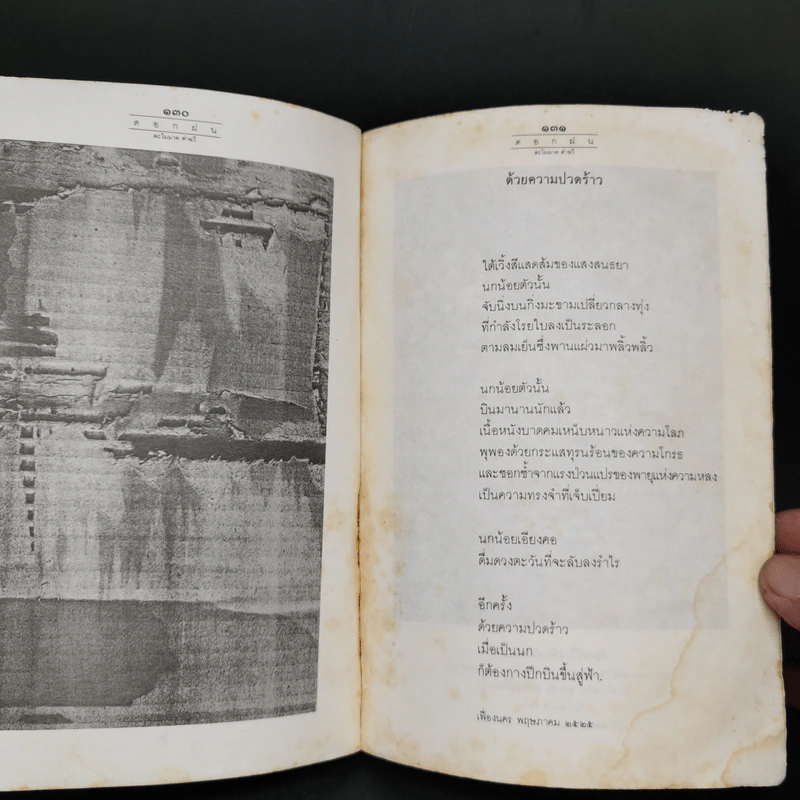 ๑๓๐
ด อ ก ฝ น
ละไมมาด คำฉวี
๑๓๑
ด อ ก ฝ น
ละไมมาด คำฉวี
ด้วยความปวดร้าว
ใต้เวิ้งสีแสดส้มของแสงสนธยา
นกน้อยตัวนั้น
จับนิ่งบนกิ่งมะขามเปลี่ยวกลางทุ่ง
ที่กำลังโรยใบลงเป็นระลอก
ตามลมเย็นซึ่งพานแผ่วมาพลิ้วพลิ้ว
นกน้อยตัวนั้น
บินมานานนักแล้ว
เนื้อหนังบาดคมเหน็บหนาวแห่งความโลภ
พุพองด้วยกระแสทุรนร้อนของความโกรธ
และชอกช้ำจากแรงป่วนแปรของพายุแห่งความหลง
เป็นความทรงจำที่เจ็บเปี่ยม
นกน้อยเอียงคอ
ดื่มดวงตะวันที่จะลับลงรำไร
อีกครั้ง
ด้วยความปวดร้าว
เมื่อเป็นนก
ก็ต้องกางปีกบินขึ้นสู่ฟ้า.
เฟื่องนคร พฤษภาคม ๒๕๒๕